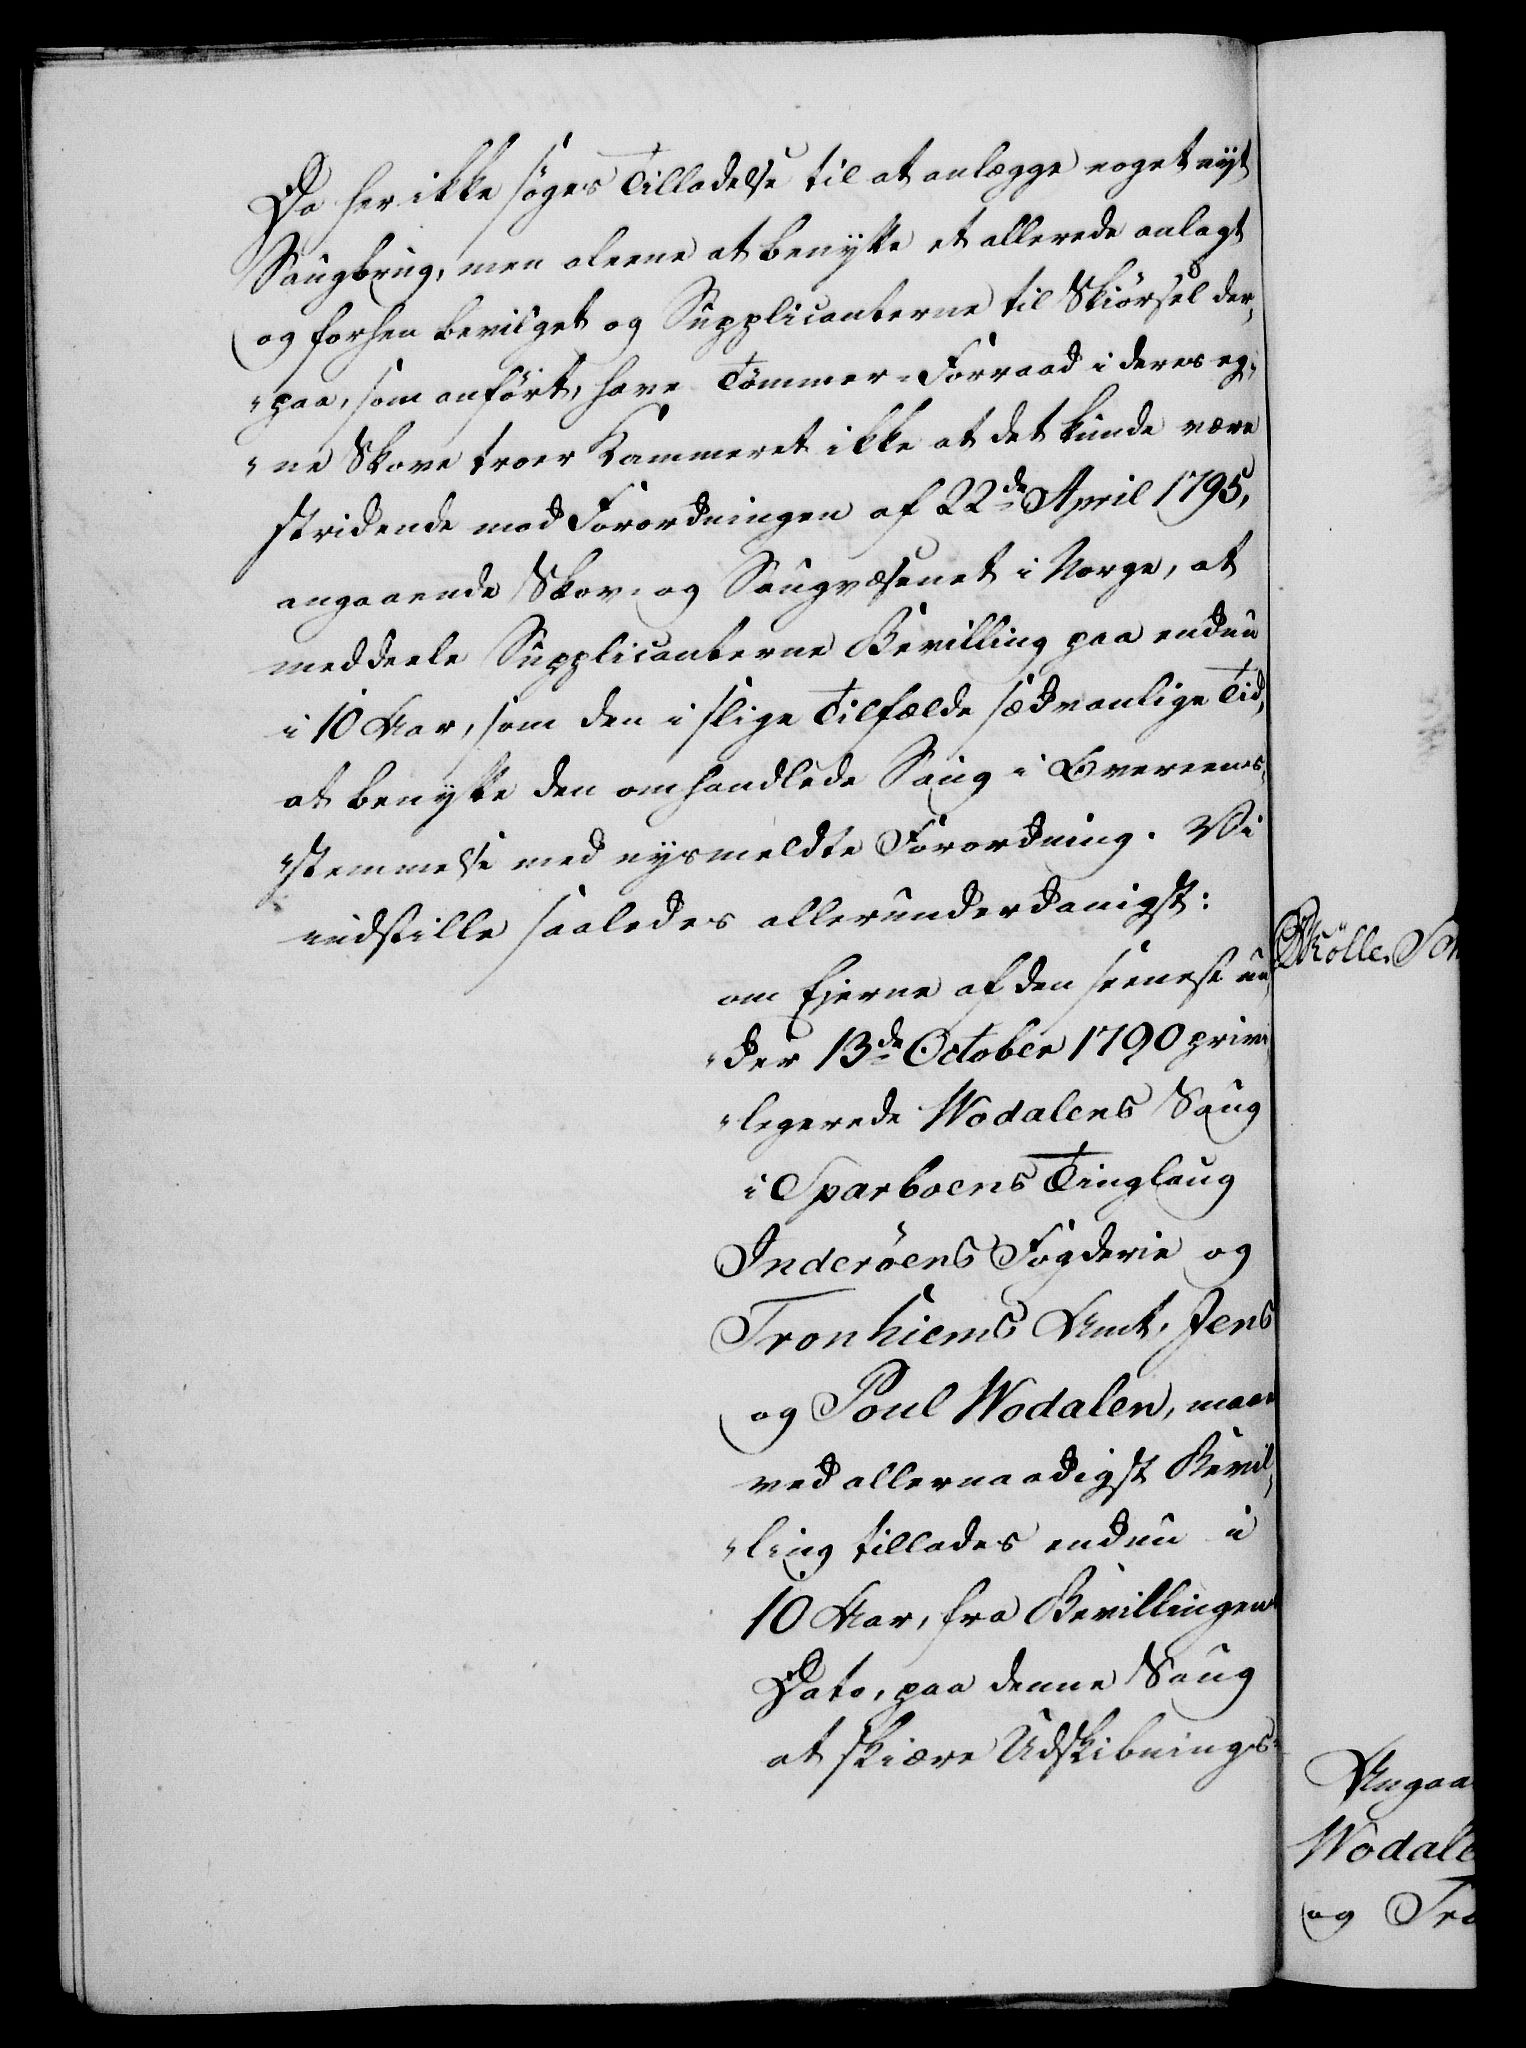 Da her ikke søges Tilladelse til at anlægge noget nyt
Saugbrug, men alene at benytte et allerede anlagt
og forhen bevilget og Supplicanterne til Skiørsel der„
„paa, som anført, have Tømmer-Forraad i deres eg„
„ne Skove troer Kammeret ikke at det kunde være
stridende mod Forordningen af 22de April 1795,
angaaende Skov- og Saugvæsenet i Norge, at
meddeele Supplicanterne Bevilling paa endnu
i 10 Aar, som den i slige Tilfælde sædvanlige Tid,
at benytte den omhandlede Saug i Overeens„
„stemmelse med nysmeldte Forordning. Vi
indstille saaledes allerunderdanigst:
om Ejerne af den seenest un„
„der 13de October 1790 privi
„legerede Wodalens Saug
i Sparboens Tinglaug
Inderøens Fogderie og
Tronhiems Amt, Jens
og Poul Wodalen, maae
ved allernaadigst Bevil„
„ling tillades endnu i
10 Aar, fra Bevillingens
Dato, paa denne Saug
at skiære Udskibnings-
Angaa
Wodale
og Tro